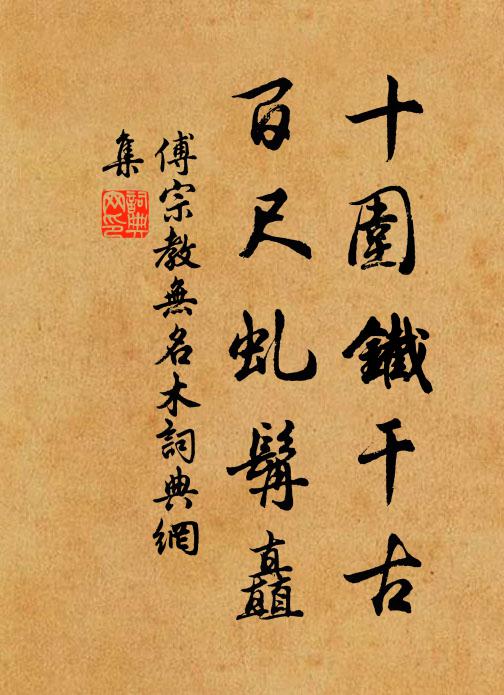 十圍鐵干古
百尺虬髯矗
傅宗教無名木詞典網
集
詞典
网印